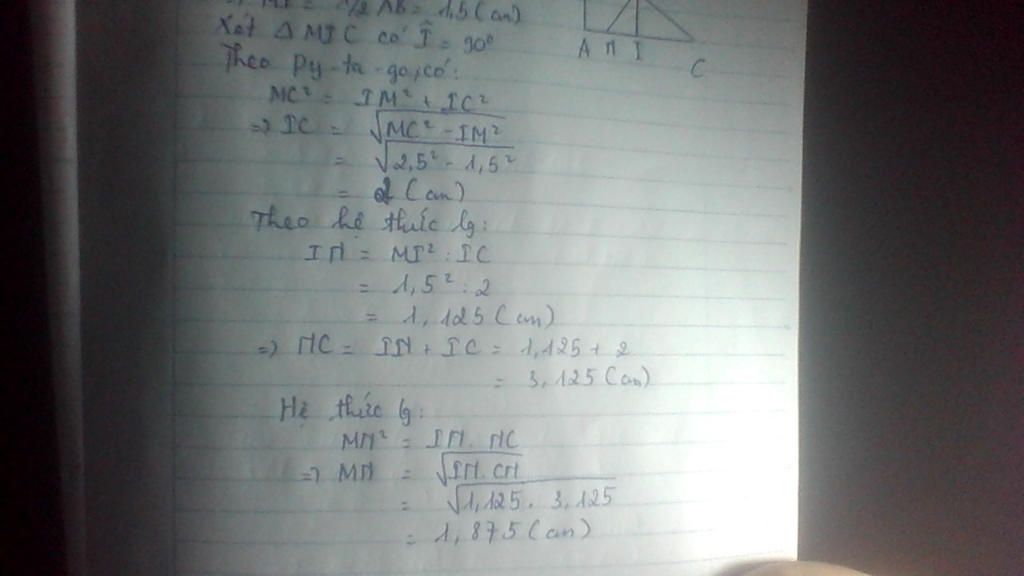 MI = 1/2 AB = 1,5 (cm)
A N I
C
Xét Δ MIC có Î = 90°
Theo Py-ta-go, có:
MC² = IM² + IC²
=> IC = √MC² - IM²
= √2,5² - 1,5²
= 2 (cm)
Theo hệ thức lg:
IN = MI² : IC
= 1,5² : 2
= 1,125 (cm)
=> NC = IN + IC = 1,125 + 2
= 3,125 (cm)
Hệ thức lg:
MN² = IN . NC
=> MN = √IN . CN
= √1,125 . 3,125
= 1,875 (cm)